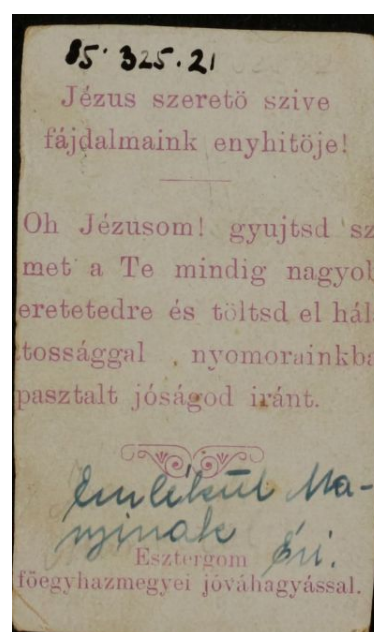 85.325.21
Jézus szeretö szive
fájdalmaink enyhitöje!
Oh Jézusom! gyujtsd sz
met a Te mindig nagyob
eretetedre és töltsd el hál
tossággal nyomorainkba
pasztalt jóságod iránt.
Emlékül Ma-
nzinak Éri.
Esztergom
föegyhazmegyei jóváhagyással.